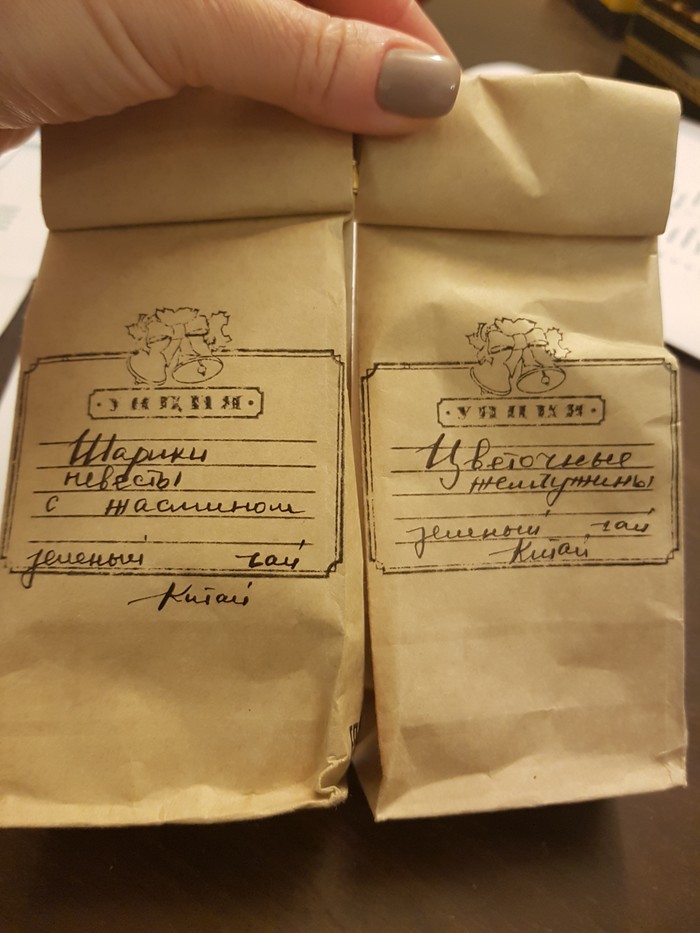 УНЦИЯ
Шарики
невесты
с жасмином
зеленый чай
Китай
УНЦИЯ
Цветочные
жемчужины
зеленый чай
Китай